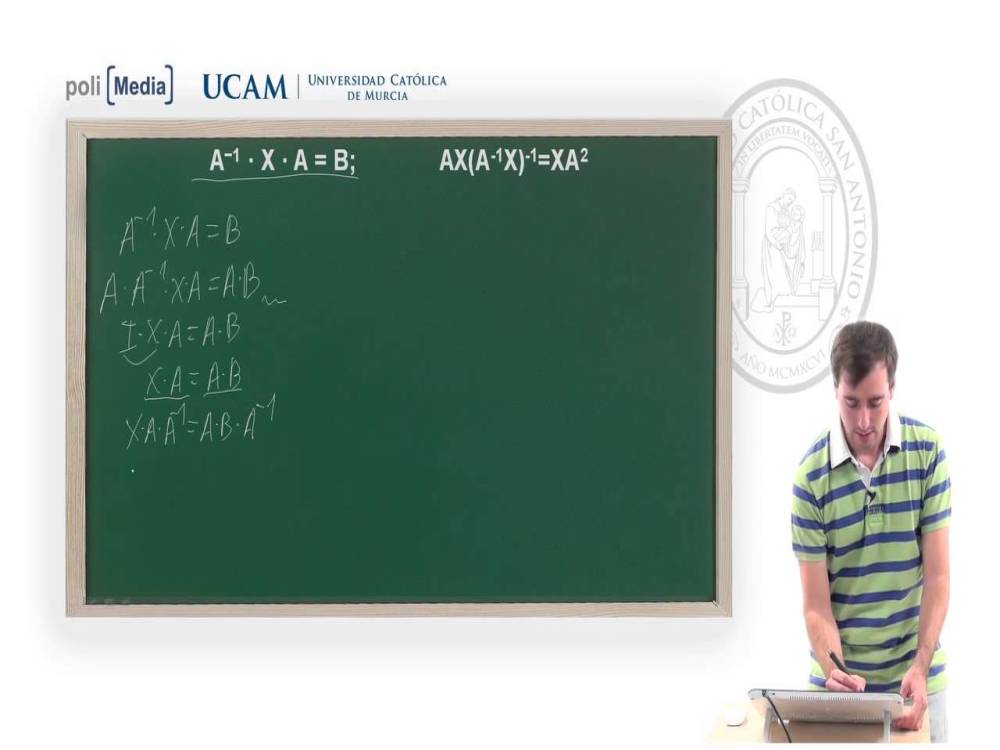 poli [Media] UCAM | UNIVERSIDAD CATÓLICA
DE MURCIA
A⁻¹ · X · A = B; AX(A⁻¹X)⁻¹=XA²
A⁻¹·X·A=B
A·A⁻¹·X·A=A·B
I·X·A=A·B
X·A=A·B
X·A·A⁻¹=A·B·A⁻¹
CATÓLICA SAN ANTONIO
AÑO MCMXCVI
IN LIBERTATEM VOCATI